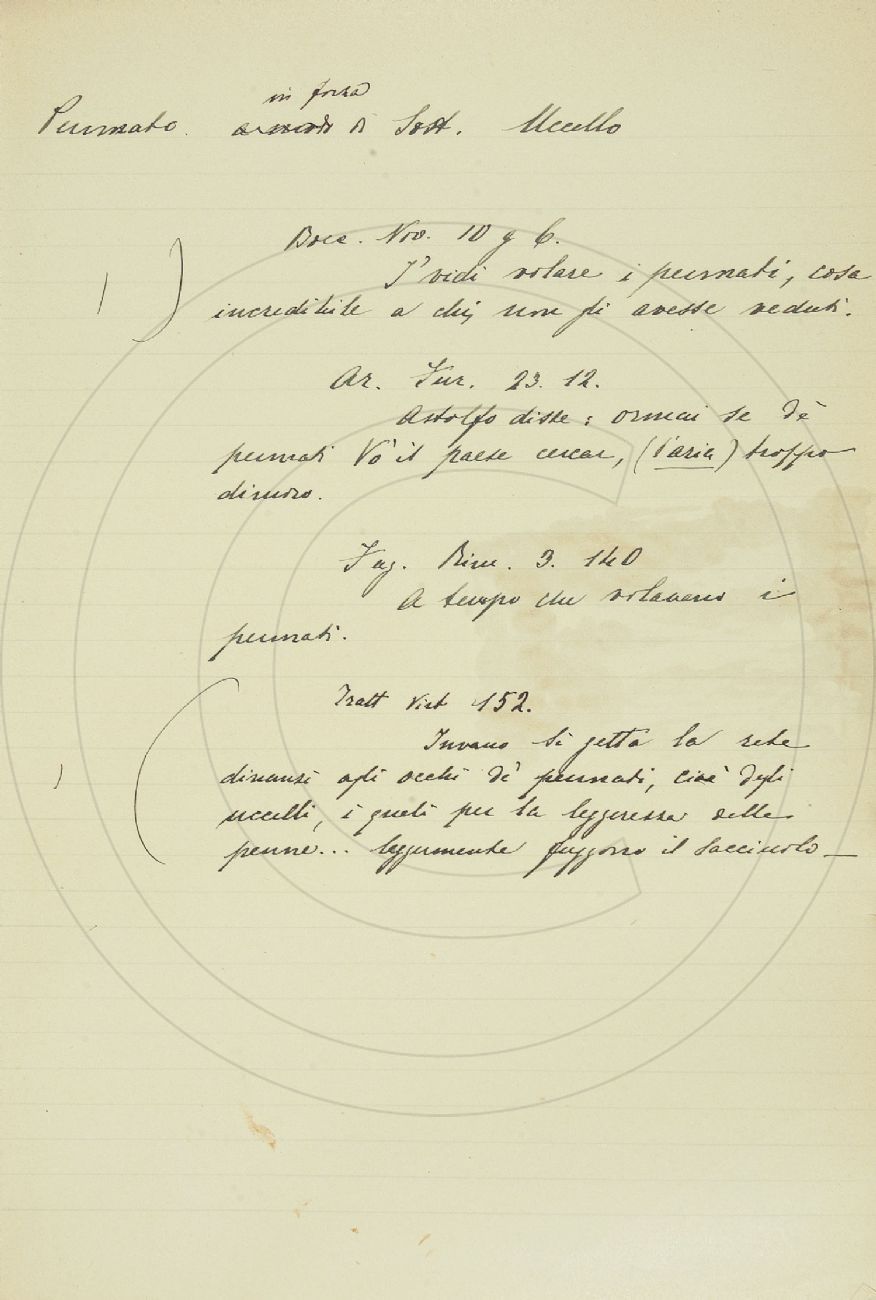 Pennato. a modo di in forza Sost. Uccello
Bocc. Nov. 10 g 6.
I' vidi volare i pennati, cosa
incredibile a chi non gli avesse veduti.
Ar. Fur. 23. 12.
Astolfo disse: ormai se de'
pennati Vo' il paese cercar, (l'aria) troppo
dimoro.
Fag. Rim. 3. 140
A tempo che volavano i
pennati.
Tratt Virt 152.
Invano si getta la rete
dinanzi agli occhi de' pennati, cioè degli
uccelli, i quali per la leggerezza delle
penne... leggermente fuggono il lacciuolo —